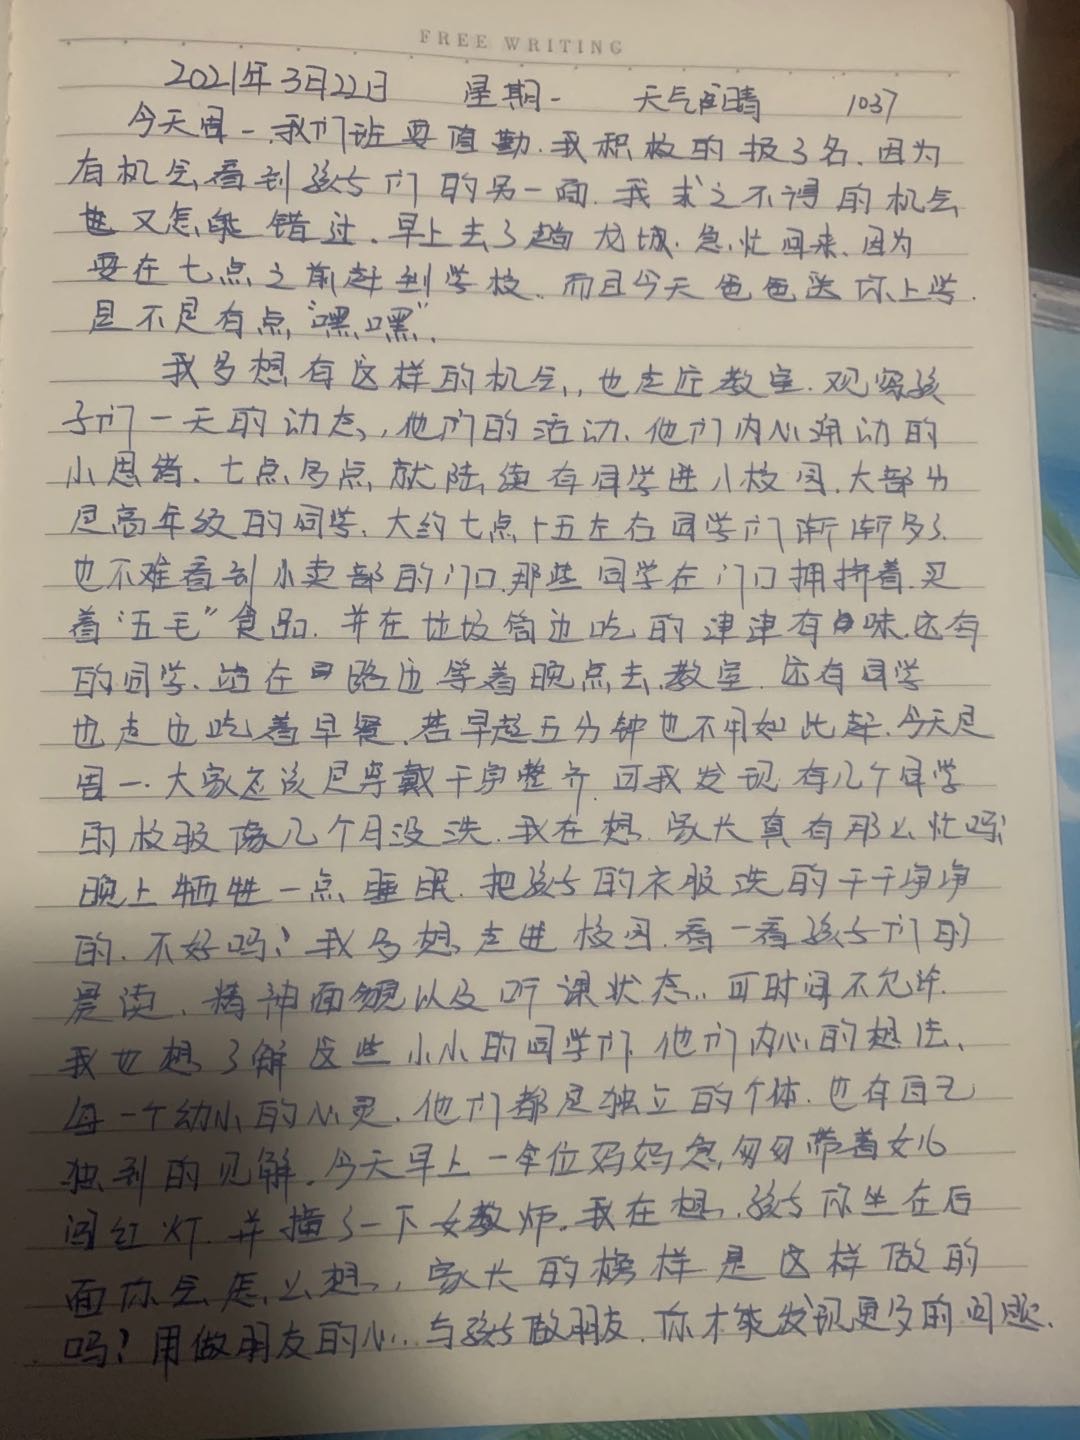 FREE WRITING
2021年3月22日 星期一 天气晴 1037
今天周一,我们班要值勤.我积极的报了名.因为
有机会看到孩子们的另一面.我求之不得的机会
又怎能错过.早上去了趟龙城.急忙回来.因为
要在七点之前赶到学校.而且今天爸爸送你上学.
是不是有点“嘿嘿”.
我多想有这样的机会,也走近教室.观察孩
子们一天的动态,他们的活动.他们内心涌动的
小思绪.七点多点就陆续有同学进入校园.大部分
是高年级的同学.大约七点十五左右同学们渐渐多了.
也不难看到小卖部的门口.那些同学在门口拥挤着.买
着“五毛”食品.并在垃圾筒边吃的津津有味.还有
的同学.站在路边等着晚点去教室.还有同学
边走边吃着早餐.若早起五分钟也不用如此赶.今天是
周一.大家应该是穿戴干净整齐.可我发现有几个同学
的校服像几个月没洗.我在想.家长真有那么忙吗?
晚上牺牲一点睡眠.把孩子的衣服洗的干干净净
的.不好吗?我多想走进校园.看一看孩子们的
晨读、精神面貌以及听课状态..可时间不允许.
我也想了解这些小小的同学们.他们内心的想法、
每一个幼小的心灵.他们都是独立的个体.也有自己
独到的见解.今天早上一位妈妈急匆匆带着女儿
闯红灯.并撞了一下女教师.我在想.孩子你坐在后
面你会怎么想,家长的榜样是这样做的
吗?用做朋友的心..与孩子做朋友.你才能发现更多的问题.